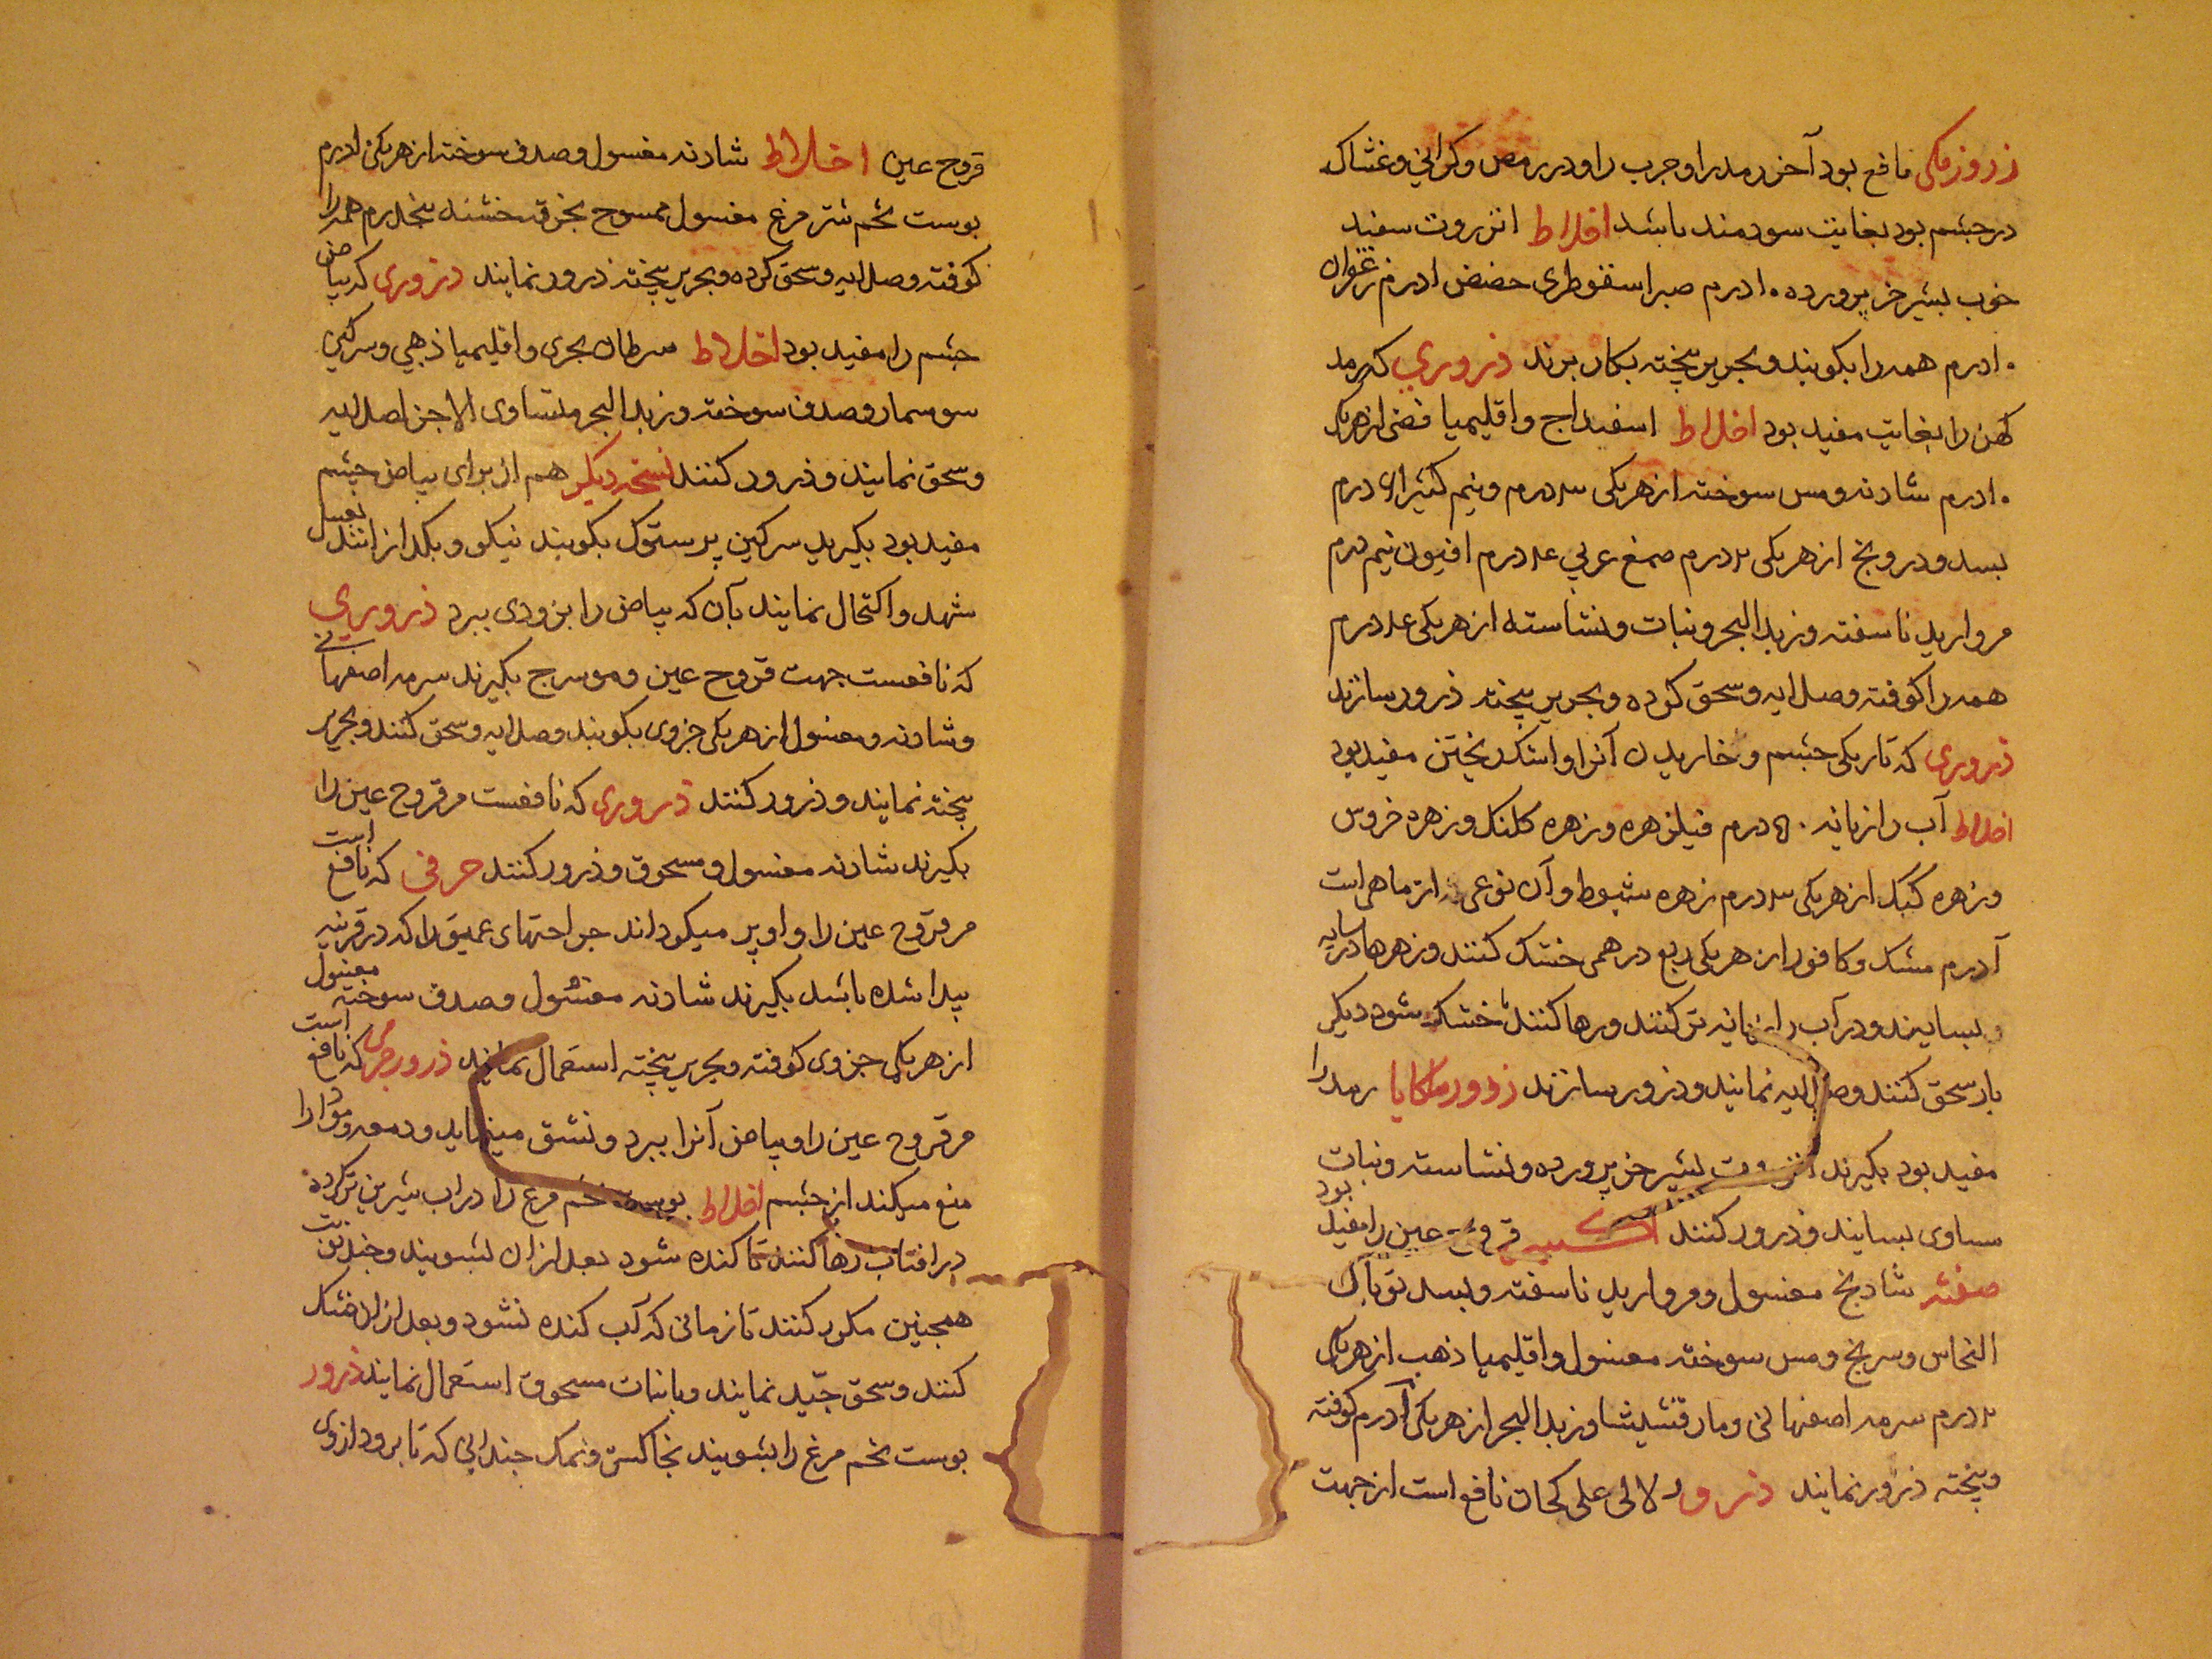 ذرور مکی نافع بود آخر رمد را و جرب را و در رمص و کرانی و غشاک
در جشم بود بغایت سودمند باشد اخلاط انزروت سفید
خوب بشیر خر پرورده ۱۰ درم صبر اسقوطری حضض ا درم زعفران
۱۰ درم همه را بکوبند و بحریر بیخته بکار برند ذروری که رمد
کهن را بغایت مفید بود اخلاط اسفیداج و اقلیمیا فضی از هریک
۱۰ درم شادنه و مس سوخته از هریکی ۳ درم و نیم کتیرا درم
بسد و درونج از هریکی ۲ درم صمغ عربی ۴ درم افیون نیم درم
مروارید ناسفته و زبد البحر و نبات و نشاسته از هریکی ۴ درم
همه را کوفته و صلایه و سحق کرده و بحریر بیخته ذرور سازند
ذروری که تاریکی جشم و خاریدن آنرا و اشک ریختن مفید بود
اخلاط آب رازیانه ۵۰ درم فیلزهره و زهره کلنک و زهره خروس
و زهره کبک از هریکی ۳ درم زهره شبوط و آن نوعی از ماهی است
آدرم مشک و کافور از هریکی ربع درهمی خشک کنند و زهرها در سایه
و بسایند و در آب رازیانه تر کنند و رها کنند تا خشک شود دیکر
بار سحق کنند و صلایه نمایند و ذرور سازند ذرور ملکایا رمد را
مفید بود بکیرند انزروت بشیر خر پرورده و نشاسته و نبات
ساوی بسایند و ذرور کنند قروح عین را مفید بود
صفته شادنج مغسول و مروارید ناسفته و بسد توبال
النحاس و سرنج و مس سوخته مغسول و اقلیمیا ذهب از هریک
۲ درم سرمه اصفهانی و مارقشیشا و زبد البحر از هریکی آدرم کوفته
و بیخته ذرور نمایند ذرور لالی علی کحان نافع است از جهت
قروح عین اخلاط شادنه مغسول و صدف سوخته از هریکی ا درم
بوست تخم شتر مرغ مغسول ممسوح بخرقه خشنه بنجدرم همه را
کوفته و صلایه و سحق کرده و بحریر بیخته ذرور نمایند ذروری که بیاض
جشم را مفید بود اخلاط سرطان بحری و اقلیمیا ذهبی و سرکین
سوسمار و صدف سوخته و زبد البحر متساوی الاجزا صلایه
و سحق نمایند و ذرور کنند نسخه دیکر هم از برای بیاض جشم
مفید بود بکیرید سرکین پرستوک بکوبند نیکو و بکدازانند بعسل
شهد و اکتحال نمایند بآن که بیاض را بزودی ببرد ذروری
که نافعست جهت قروح عین و موسرج بکیرند سرمه اصفهانی
و شادنه و مغسول از هریکی جزوی بکوبند و صلایه و سحق کنند و بحریر
بیخته نمایند و ذرور کنند ذروری که نافعست مر قروح عین را
بکیرند شادنه مغسول و مسحوق و ذرور کنند حرفی که نافع است
مر قروح عین را و او پر میکرداند جراحتهای عمیق را که در قرنیه
پیدا شده باشد بکیرند شادنه مغسول و صدف سوخته مغسول
از هریکی جزوی کوفته و بحریر بیخته استعمال نمایند ذرور که نافع است
مر قروح عین را و بیاض آنرا ببرد و نشف مینماید و دمعه و مواد را
منع میکند از جشم اخلاط بوست تخم مرغ را در آب شیرین تر کرده
در آفتاب رها کنند تا کنده شود بعد از آن بشویند و جند نوبت
همجنین مکرر کنند تا زمانی که آب کنده نشود و بعد از آن خشک
کنند و سحق جید نمایند و با نبات مسحوق استعمال نمایند ذرور
بوست تخم مرغ را بشویند بخاکستر و نمک جندانی که تا برود از وی